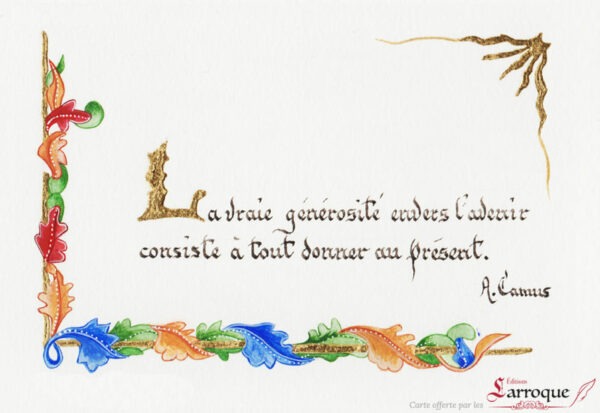 La vraie générosité envers l'avenir
consiste à tout donner au présent.
A. Camus
Carte offerte par les Éditions Larroque